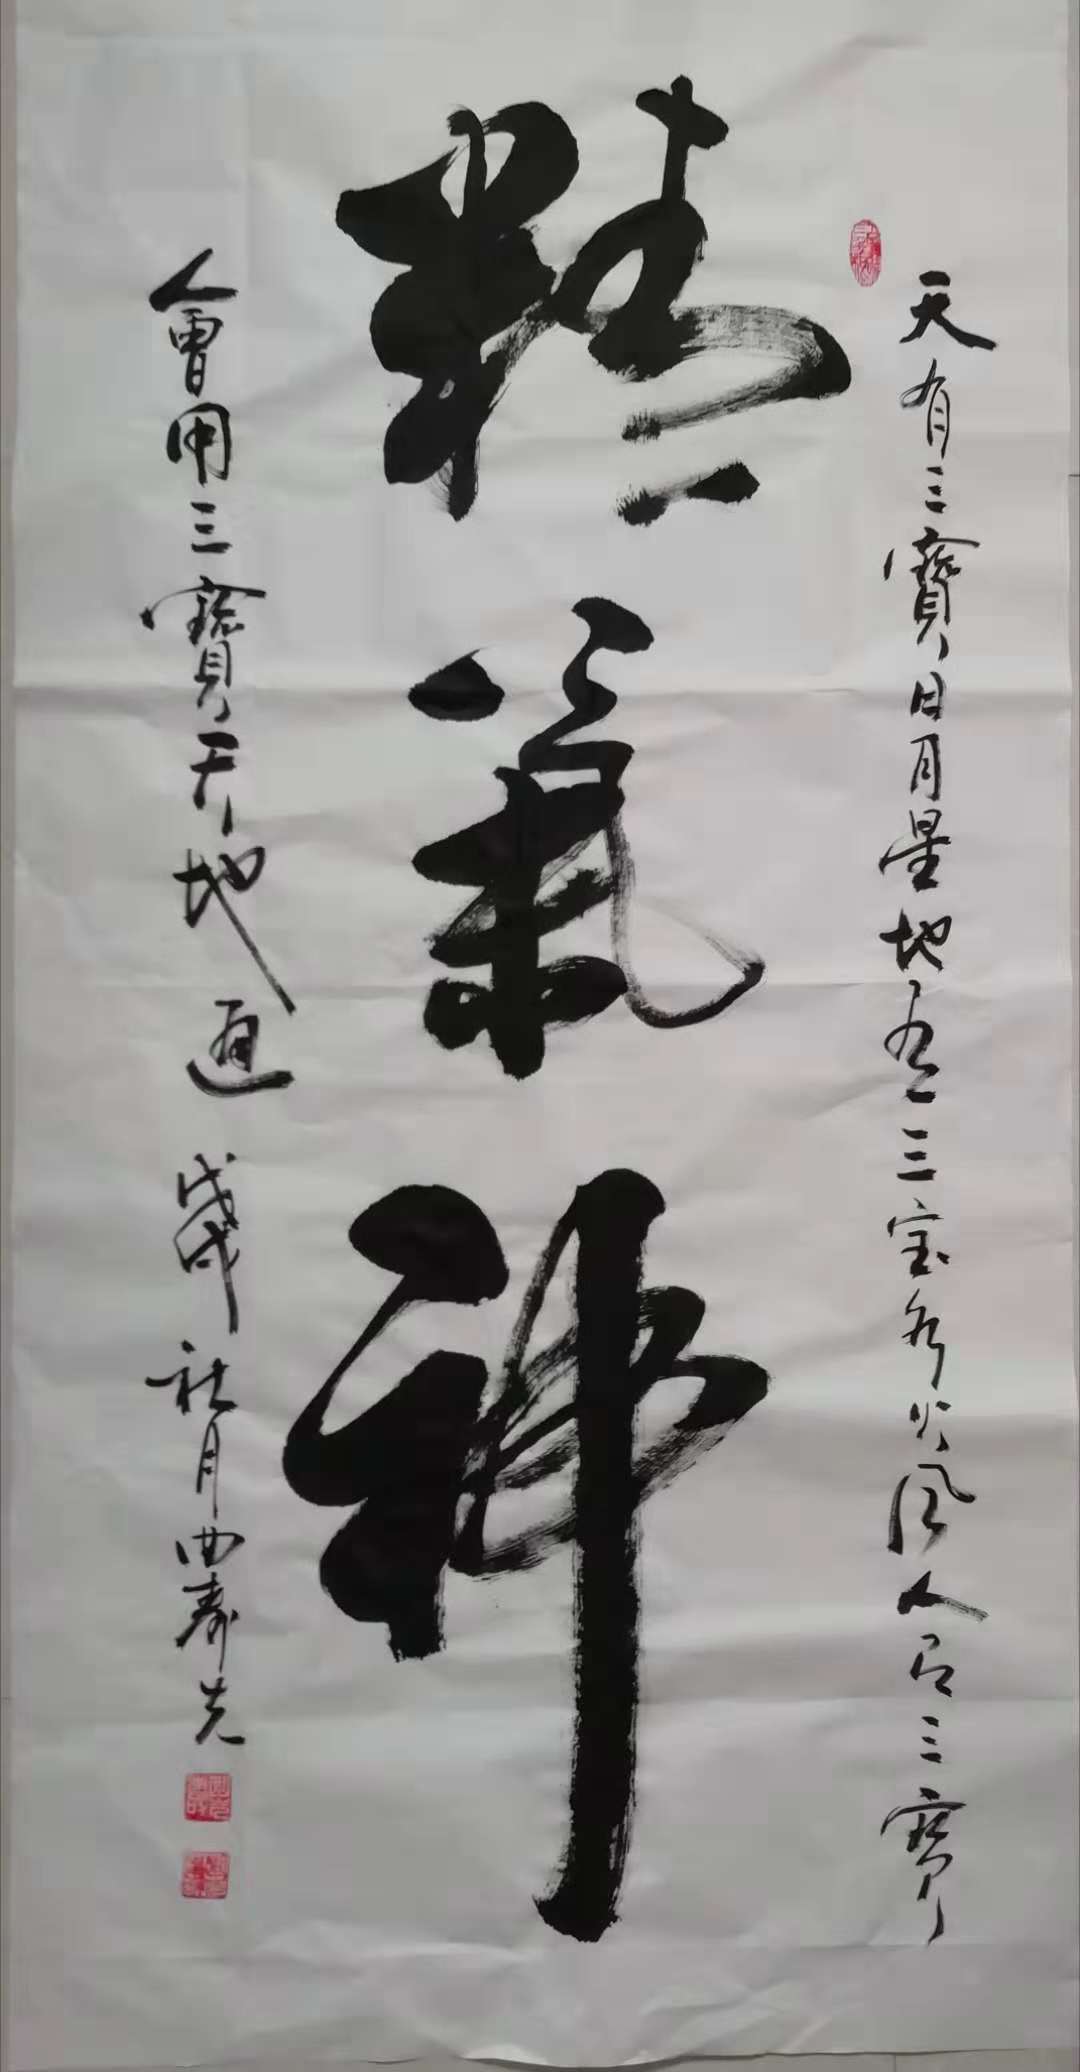 天有三寶日月星地有三宝水火风人有三寶
精氣神
會用三寶天地通 戊戌 社月曲寿先